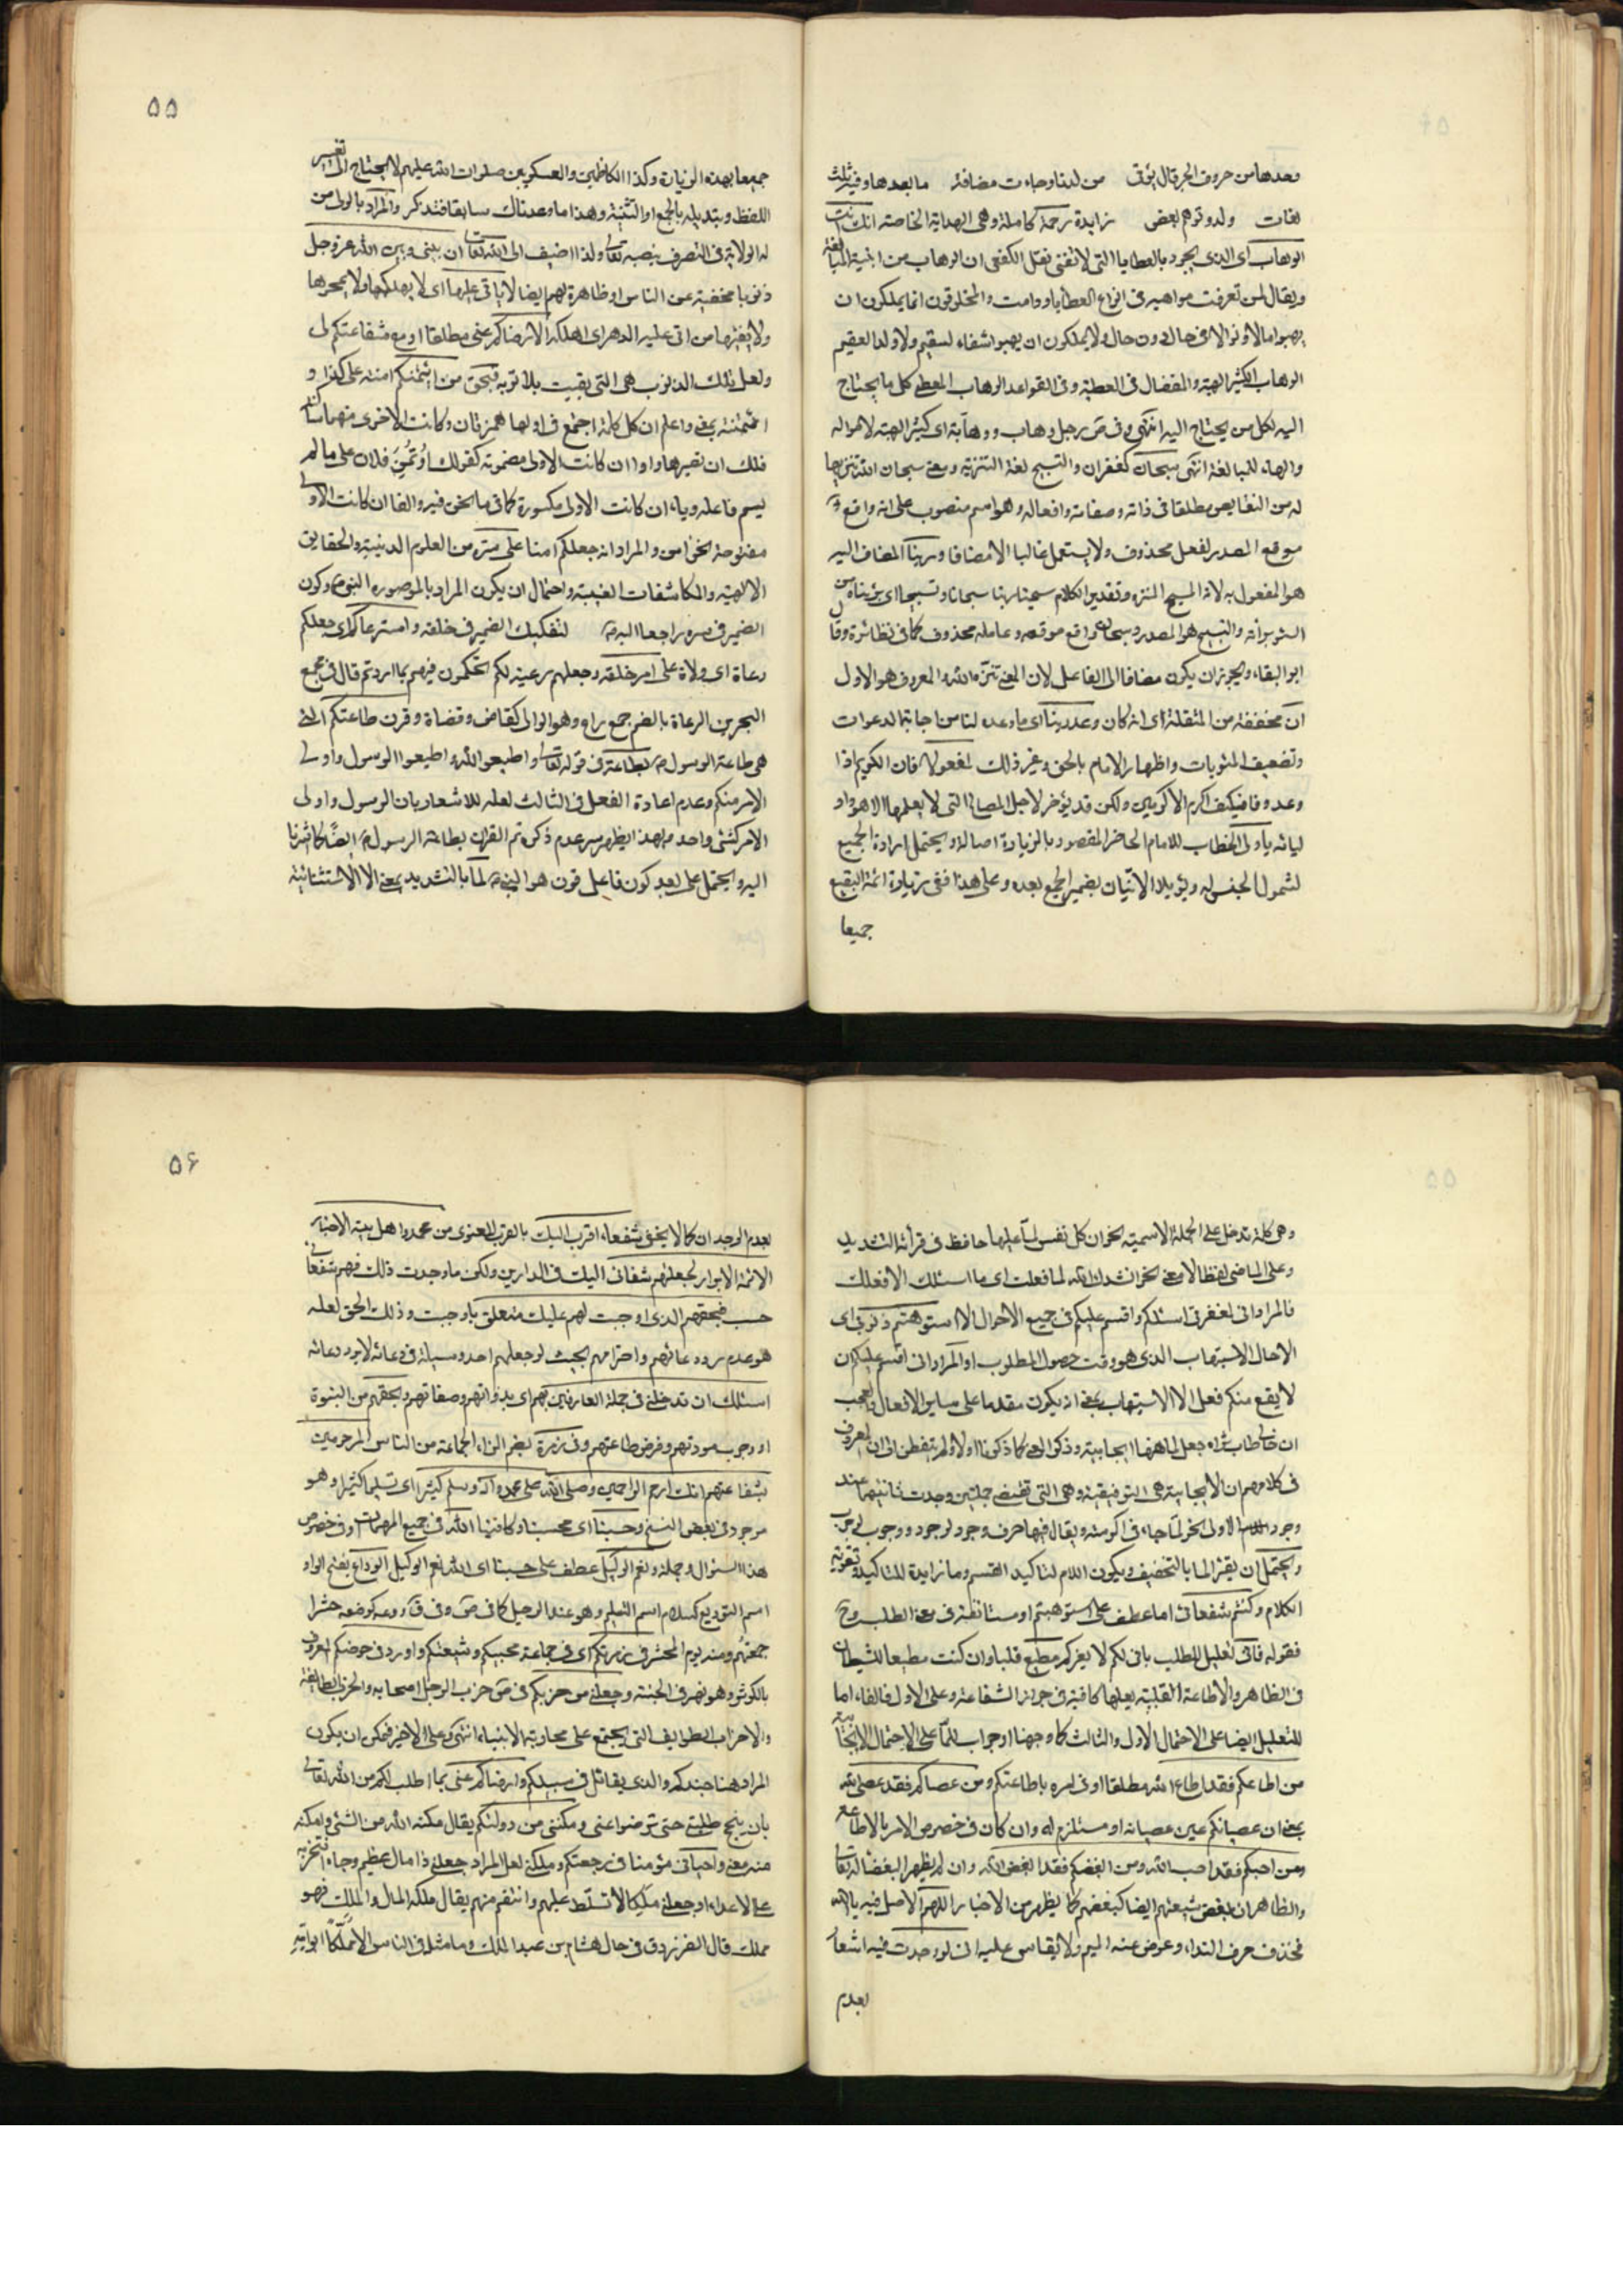 وبعدها من حروف الجر قال يؤتى من لدنا وجاءت مضافة ما بعدها وفيه ثلث
لغات ولدو توهم بعض زايدة رحمة كاملة وهى الهداية الخاصة انك انت
الوهاب اى الذى يجود بالعطايا التى لا تفنى نقل الكفعمى ان الوهاب من ابنية المبالغة
ويقال لمن تعرفت مواهبه فى انواع العطايا ودامت والمخلوقون انما يملكون ان
يهبوا مالا او نوالا فى حال دون حال ولا يملكون ان يهبوا شفاء لسقيم ولا ولدا لعقيم
الوهاب الكثير الهبة والمفضال فى العطية وفى القواعد الوهاب المعطى كل ما يحتاج
اليه لكل من يحتاج اليه انتهى وفى ص رجل وهاب ووهابة اى كثير الهبة لامواله
والهاء للمبالغة انتهى سبحان كغفران والتسبيح لغة التنزيه ومعنى سبحان الله تنزيها
له من النقايص مطلقا فى ذاته وصفاته وافعاله وهو اسم منصوب على انه واقع
موقع المصدر لفعل محذوف ولا يستعمل غالبا الا مضافا وربنا المضاف اليه
هو المفعول به لانه المسبح المنزه وتقدير الكلام سبحنا ربنا سبحانا وتسبيحا اى برئناه من
السوء براءة والتسبيح هو المصدر وسبحان واقع موقعه وعامله محذوف كما فى نظائره وقال
ابو البقاء ويجوز ان يكون مضافا الى الفاعل لان المعنى تنزه الله والمعروف هو الاول
ان مخففة من المثقلة اى انه كان وعد ربنا اى ما وعده لنا من اجابة الدعوات
وتضعيف المثوبات واظهار الامام بالحق وغير ذلك لمفعولا فان الكريم اذا
وعد وفا فكيف اكرم الاكرمين ولكن قد يؤخر لاجل المصالح التى لا يعلمها الا هو او
لياته يا ولى الخطاب للامام الحاضر المقصود بالزيارة اصالة ويحتمل ارادة الجميع
لشمول الجنس له ويؤيده الاتيان بضمير الجمع بعده وعلى هذا ففى زيارة ائمة البقيع
جميعا
۵۵
جميعا بهذه الزيارة وكذا الكاظمين والعسكريين صلوات الله عليهم لا يحتاج الى تغيير
اللفظ وتبديله بالجمع او التثنية وهذا ما وعدناك سابقا فتذكر والمراد بالولى من
له الولاية فى التصرف بنصبه تعالى ولذا اضيف الى الله تعالى ان بينى وبين الله عز وجل
ذنوبا مخفية عن الناس او ظاهرة لهم ايضا لا ياتى عليها اى لا يهلكها ولا يمحوها
ولا يغفرها من اتى عليه الدهر اى اهلكه الا رضاكم عنى مطلقا او مع شفاعتكم لى
ولعل تلك الذنوب هى التى بقيت بلا توبة فبحق من ائتمنكم امنته على كذا و
ائتمنته بمعنى واعلم ان كل كلمة اجتمع فى اولها همزتان وكانت الاخرى منهما ساكنة
فلك ان تصيرها واوا ان كانت الاولى مضمومة كقولك اوتمن فلان على ما لم
يسم فاعله وياء ان كانت الاولى مكسورة كما فى ما نحن فيه والفا ان كانت الاولى
مفتوحة نحو امن والمراد انه جعلكم امنا على سره من العلوم الدينية والحقايق
الالهية والمكاشفات الغيبية واحتمال ان يكون المراد بالموصول هو النبى ص وكون
الضمير فى سره راجعا اليه لتفكيك الضمير فى خلقه واسترعاكم اى جعلكم
رعاة اى ولاة على امر خلقه وجعلهم رعية لكم تحكمون فيهم بما اردتم قال فى مجمع
البحرين الرعاة بالضم جمع راع وهو الوالى كقاض وقضاة وقرن طاعتكم التى
هى طاعة الرسول ص بطاعته فى قوله تعالى واطيعوا الله واطيعوا الرسول واولى
الامر منكم وعدم اعادة الفعل فى الثالث لعله للاشعار بان الرسول واولى
الامر كشئ واحد وبهذا يظهر سر عدم ذكره ثم القران بطاعة الرسول ص ايضا كما اشرنا
اليه ويحتمل على بعد كون فاعل قرن هو النبى ص لما بالتشديد بمعنى الا الاستثنائية
وهى كلمة تدخل على الجملة الاسمية نحو ان كل نفس لما عليها حافظ فى قرائة التشديد
وعلى الماضى لفظا لا معنى نحو انشدك الله لما فعلت اى ما اسئلك الا فعلك
فالمراد انى لغفرتى اسئلكم واقسم عليكم فى جميع الاحوال الا استوهبتم ذنوبى اى
الا حال الاستيهاب الذى هو وقت حصول المطلوب او المراد انى اقسم عليكم ان
لا يقع منكم فعل الا الاستيهاب بمعنى ان يكون مقدما على ساير الافعال والعجب
ان خالى طاب ثراه جعل لما ههنا ايجابية وذكر المعنى كما ذكرنا اولا ولم يتفطن ان المعروف
فى كلامهم ان الايجابية هى التوفيقية وهى التى تقتضى جملتين وجدت ثانيتهما عند
وجود الاولى نحو لما جاءنى اكرمته ويقال فيها حرف وجود لوجود ووجوب لوجوب
ويحتمل ان يقرء لما بالتخفيف ويكون اللام لتاكيد القسم وما زايدة للتاكيد وتقوية
الكلام وكنتم شفعائى اما عطف على استوهبتم او مستانفة فى معنى الطلب وح
فقوله فانى تعليل للطلب بانى لكم لا لغيركم مطيع قلبا وان كنت مطيعا للشيطان
فى الظاهر والاطاعة القلبية لعلها كافية فى جواز الشفاعة وعلى الاول فالفاء اما
للتعليل ايضا على الاحتمال الاول والثالث كما وجهنا او جواب للما على الاحتمال الايجابية
من اطاعكم فقد اطاع الله مطلقا او فى امره باطاعتكم ومن عصاكم فقد عصى الله
بمعنى ان عصيانكم عين عصيانه او مستلزم له وان كان فى خصوص الامر بالاطاعة
ومن احبكم فقد احب الله ومن ابغضكم فقد ابغض الله وان لم يظهر البغض له تعالى
والظاهر ان بغض شيعتهم ايضا كبغضهم كما يظهر من الاخبار اللهم الاصل فيه يا الله
فحذف حرف النداء وعوض عنه الميم ولا يقاس عليه انى لو وجدت فيه اشعار
لعدم
۵۶
لعدم الوجدان كما لا يخفى شفعاء اقرب اليك بالقرب المعنوى من محمد واهل بيته الاخيار
الائمة الابرار لجعلتهم شفعائى اليك فى الدارين ولكن ما وجدت ذلك فهم شفعائى
حسب فبحقهم الذى اوجبت لهم عليك متعلق باوجبت وذلك الحق لعله
هو عدم رد دعائهم واحترامهم بحيث لو جعلهم احد وسيلة فى دعائه لا يرد دعائه
اسئلك ان تدخلنى فى جملة العارفين بهم اى بذواتهم وصفاتهم وبحقهم من النبوة
او وجوب مودتهم وفرض طاعتهم وفى زمرة بضم الزاء الجماعة من الناس المرحومين
بشفاعتهم انك ارحم الراحمين وصلى الله على محمد وآله وسلم كثيرا اى تسليما كثيرا وهو
موجود فى بعض النسخ وحسبنا اى محسبنا وكافينا الله فى جميع المهمات او فى خصوص
هذا السئوال وجملة ونعم الوكيل عطف على حسبنا اى الله نعم الوكيل الوداع بفتح الواو
اسم التوديع كسلام اسم التسليم وهو عند الرحيل كما فى ص وفى ق ودعه كوضعه حشرا
جمعهم ومنه يوم المحشر فى زمرتكم اى فى جماعة محبيكم وشيعتكم واوردنى حوضكم المعروف
بالكوثر وهو نهر فى الجنة وجعلنى من حزبكم فى ص حزب الرجل اصحابه والحزب الطائفة
والاحزاب الطوايف التى يجتمع على محاربة الانبياء انتهى وعلى الاخير فمكن ان يكون
المراد هنا جندكم والذى يقاتل فى سبيلكم وارضاكم عنى بما اطلب لكم من الله تعالى
بان ينجح طلبتى حتى ترضوا عنى ومكننى من دولتكم يقال مكنه الله من الشئ وامكنه
منه بمعنى واحيانى مؤمنا فى رجعتكم وملكنى لعل المراد جعلنى ذا مال عظيم وجاه افتخر به
على الاعداء او جعلنى مليكا لاتسلط عليهم وانتقم منهم يقال ملكه المال والملك فهو
مملك قال الفرزدق فى خال هشام بن عبد الملك وما مثله فى الناس الا مملكا ابو امه